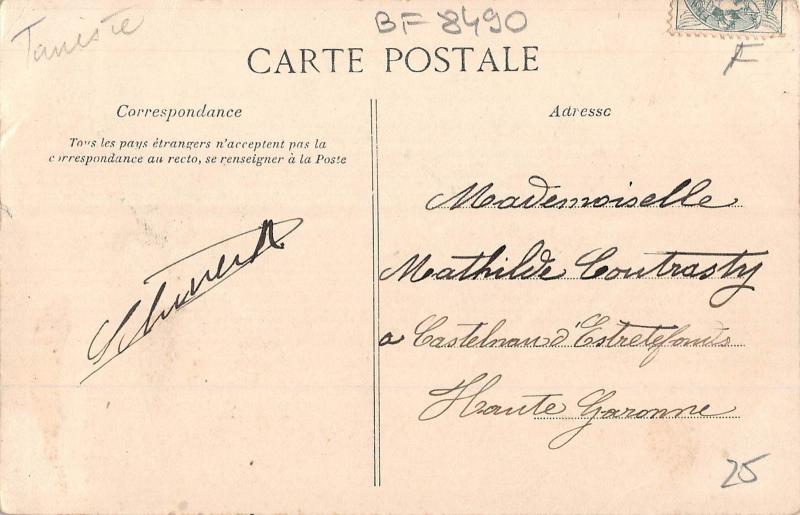 BF 8490
CARTE POSTALE
Correspondance
Tous les pays étrangers n'acceptent pas la
correspondance au recto, se renseigner à la Poste
Adresse
Mademoiselle
Mathilde Coutrasty
a Castelnau d'Estretefonds
Haute Garonne
25
F